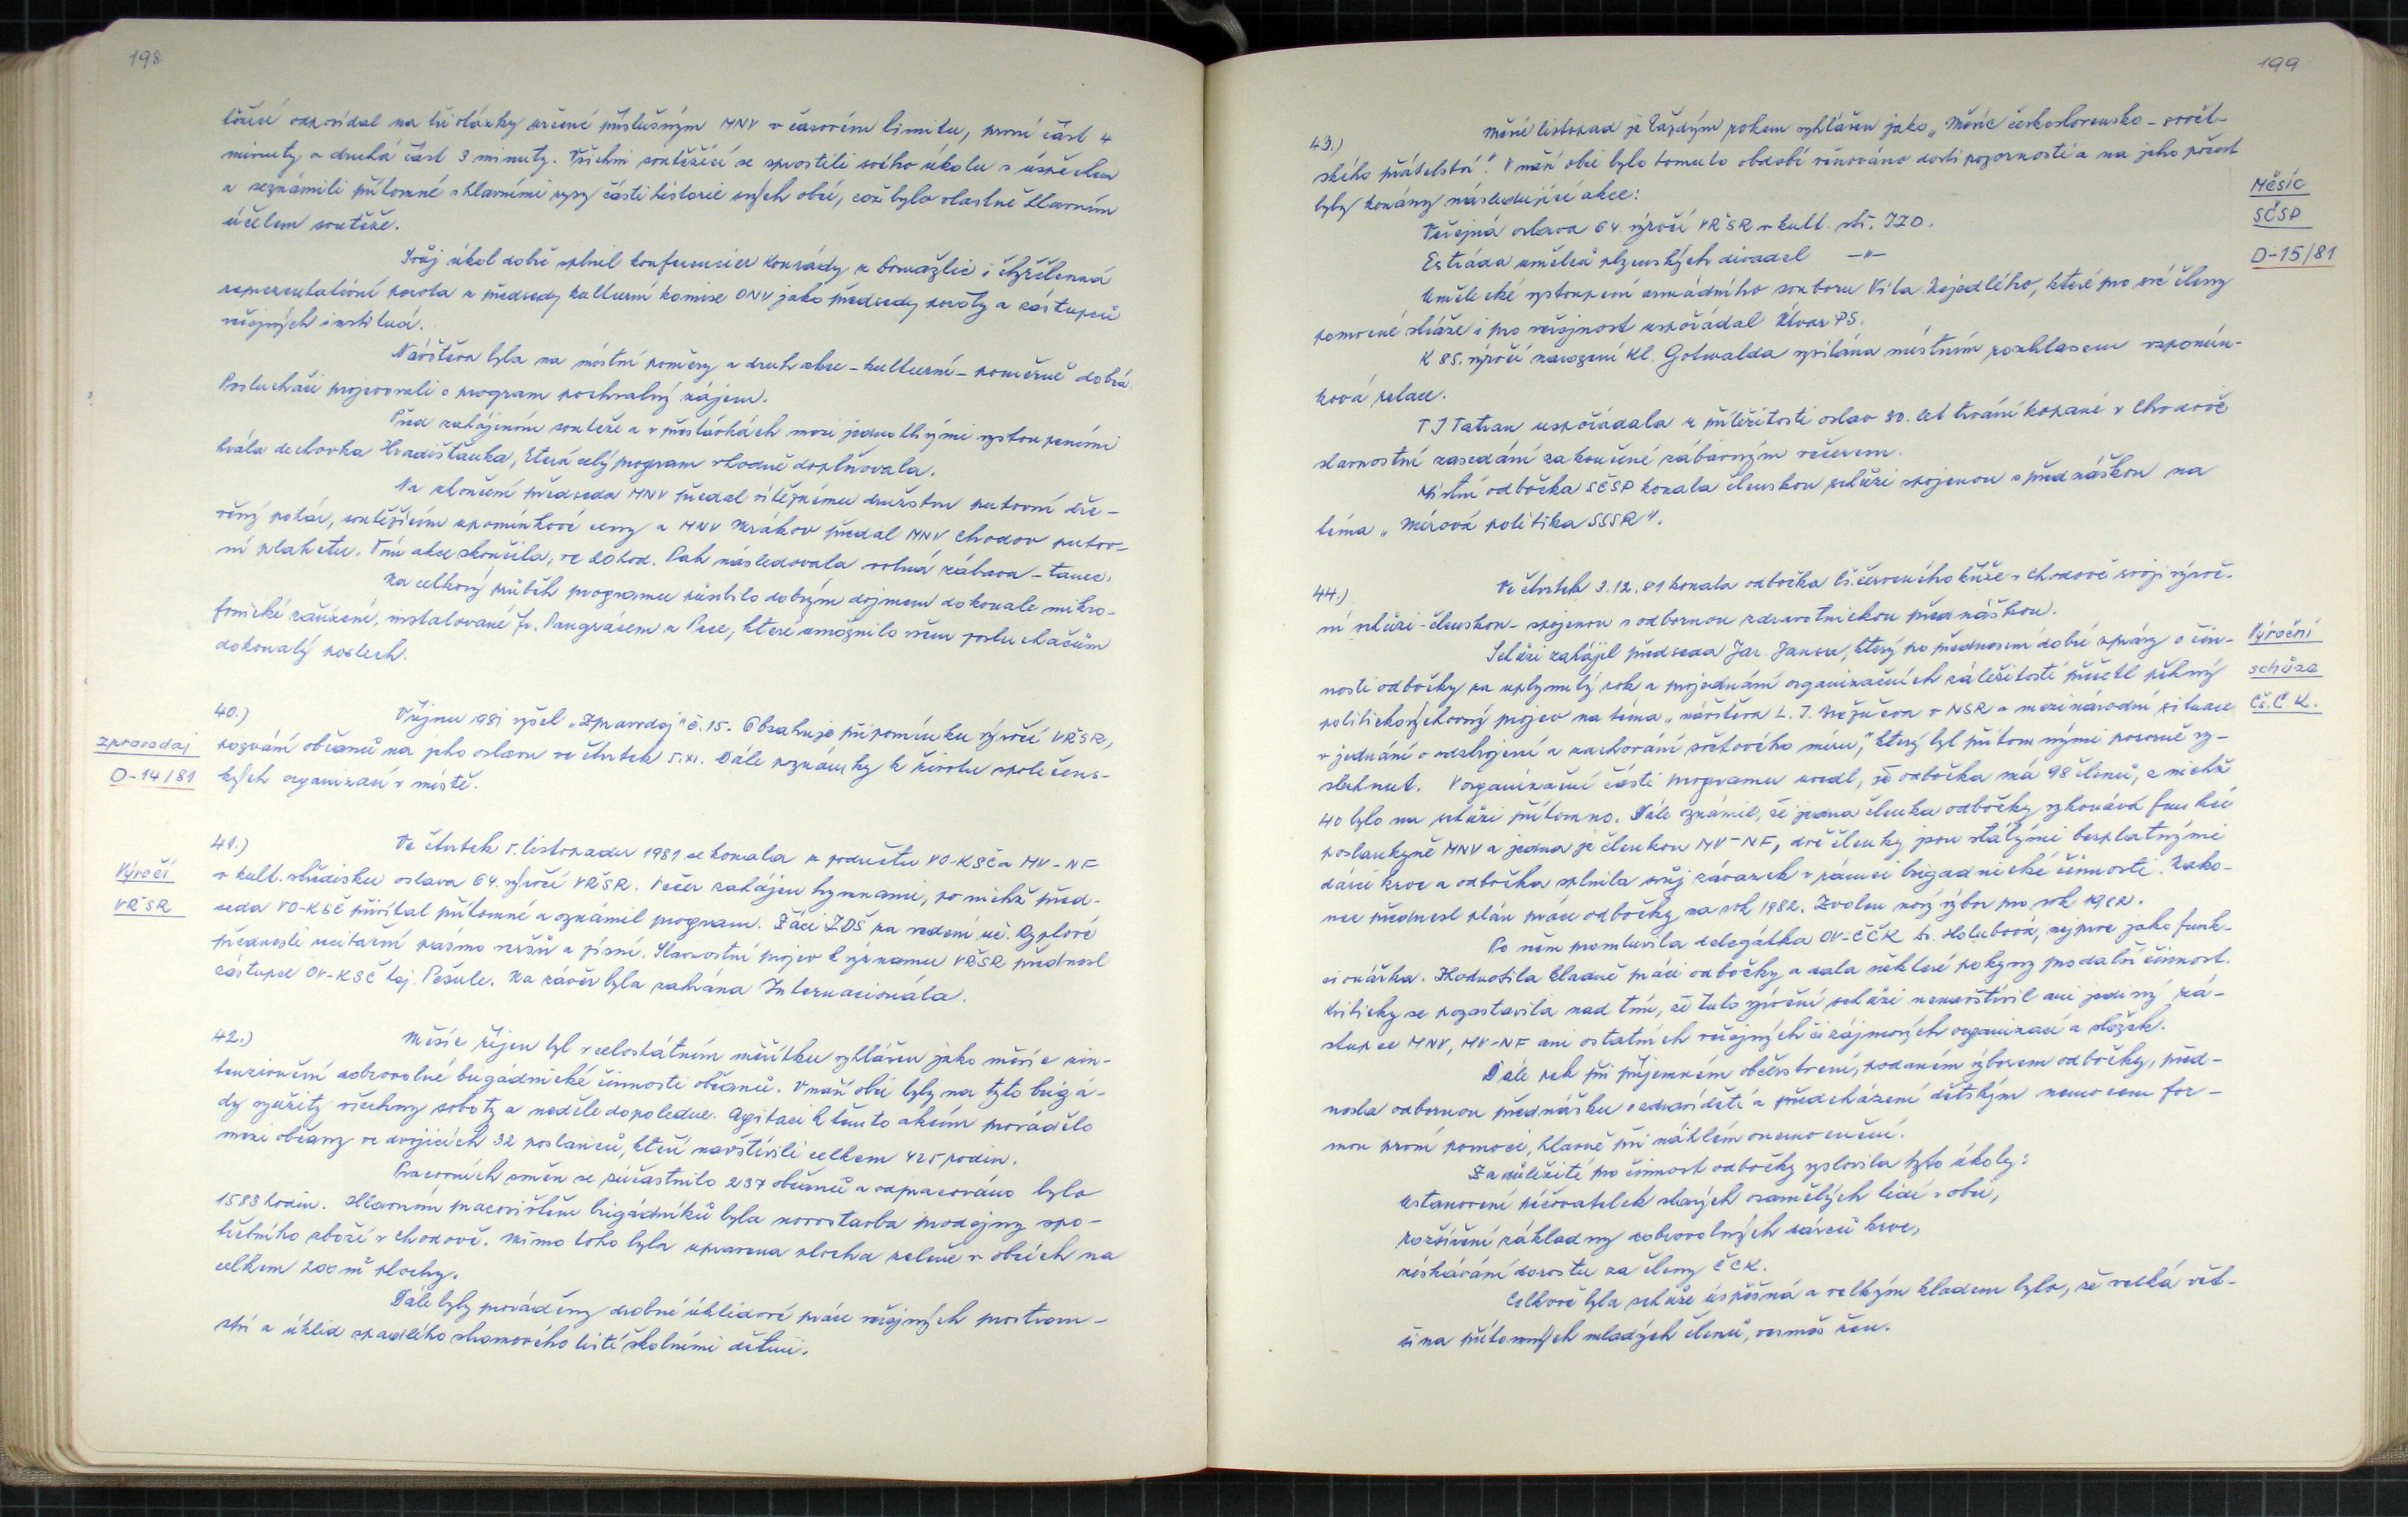 198
těžící odpovídal na tři otázky určené příslušným MNV v časovém limitu, první část 4
minuty a druhá část 3 minuty. Všichni soutěžící se zprostili svého úkolu s úspěchem
a seznámili přítomné s hlavními rysy části historie svých obcí, což bylo vlastně hlavním
účelem soutěže.
Svůj úkol dobře splnil konferenciér Konrády z Domažlic i čtyřčlenná
representativní porota z předsedy kulturní komise ONV jako předsedy poroty a zástupců
veřejných institucí.
Návštěva byla na místní poměry a druh akce - kulturní - poměrně dobrá.
Posluchači projevovali o program pochvalný zájem.
Před zahájením soutěže a v přestávkách mezi jednotlivými vystoupeními
hrála dechovka Hradišťanka, která celý program vhodně doplňovala.
Na skončení předseda MNV předal vítěznému družstvu putovní dře-
věný pohár, soutěžícím upomínkové ceny a MNV Mrákov předal MNV Chodov putov-
ní plaketu. Tím akce skončila, ve hod. Pak následovala volná zábava - tanec.
Na celkový průběh programu působilo dobrým dojmem dokonale mikro-
fonické zařízení, instalované Fr. Pangrácem z Pece, které umožnilo všem posluchačům
dokonalý poslech.
40.)
V říjnu 1981 vyšel „Zpravodaj" č. 15. Obsahuje připomínku výročí VŘSR,
zpravodaj
pozvání občanů na jeho oslavu ve čtvrtek 5.XI. Dále poznámky k životu společens-
D-14/81
kých organizací v místě.
41.)
Ve čtvrtek 5. listopadu 1981 se konala z podnětu VO-KSČ a MV-NF
Výročí
v kult. středisku oslava 64. výročí VŘSR. Večer zahájen hymnami, po nichž před-
VŘSR
seda VO-KSČ přivítal přítomné a oznámil program. Žáci ZDŠ za vedení uč. Ryplové
přednesli recitační pásmo veršů a písní. Slavnostní projev k významu VŘSR přednesl
zástupce OV-KSČ taj. Pešule. Na závěr byla zahrána Internacionála.
42.)
Měsíc říjen byl v celostátním měřítku vyhlášen jako měsíc zin-
tenzivnění dobrovolné brigádnické činnosti občanů. V naší obci byly na tyto brigá-
dy využity všechny soboty a neděle dopoledne. Agitaci k těmto akcím provádělo
mezi občany ve dvojicích 32 poslanců, kteří navštívili celkem 425 rodin.
Pracovních směn se zúčastnilo 237 občanů a odpracováno bylo
1583 hodin. Hlavním pracovištěm brigádníků byla novostavba prodejny spo-
třebního zboží v Chodově. Mimo toho byla upravena plocha zeleně v obcích na
celkem 200 m² plochy.
Dále byly prováděny drobné úklidové práce veřejných prostran-
ství a úklid spadlého stromového listí školními dětmi.
199
43.)
Měsíc listopad je každým rokem vyhlášen jako „Měsíc československo-sovět-
ského přátelství". V naší obci bylo tomuto období věnováno dosti pozornosti a na jeho počest
Měsíc
byly konány následující akce:
SČSP
Veřejná oslava 64. výročí VŘSR v kult. stř. JZD.
D-15/81
Estráda umělců plzeňských divadel —"—
Umělecké vystoupení armádního souboru Víta Nejedlého, které pro své členy
pomocné stráže i pro veřejnost uspořádal Útvar PS.
K 85. výročí narození Kl. Gotwalda vysílána místním rozhlasem vzpomín-
ková relace.
TJ Tatran uspořádala u příležitosti oslav 50. let trvání kopané v Chodově
slavnostní zasedání zakončené zábavným večerem.
Místní odbočka SČSP konala členskou schůzi spojenou s přednáškou na
téma „Mírová politika SSSR".
44.)
Ve čtvrtek 3.12.81 konala odbočka Čs. červeného kříže v Chodově svoji výroč-
ní schůzi - členskou - spojenou s odbornou zdravotnickou přednáškou.
Výroční
Schůzi zahájil předseda Jar. Jansa, který po přednesení dobré zprávy o čin-
schůze
nosti odbočky za uplynulý rok a projednání organizačních záležitostí přečetl pěkný
Čs.Č K.
politickovýchovný projev na téma „návštěva L. I. Brežněva v NSR a mezinárodní situace
v jednání o odzbrojení a zachování světového míru," který byl přítomnými pozorně vy-
slechnut. V organizační části programu uvedl, že odbočka má 98 členů, z nichž
40 bylo na schůzi přítomno. Dále oznámil, že jedna členka odbočky vykonává funkci
poslankyně MNV a jedna je členkou MV-NF, dvě členky jsou stálými bezplatnými
dárci krve a odbočka splnila svůj závazek v rámci brigádnické činnosti. Nako-
nec přednesl plán práce odbočky na rok 1982. Zvolen nový výbor pro rok 1982.
Po něm promluvila delegátka OV-ČČK s. Holubová, nejprve jako funk-
cionářka. Hodnotila kladně práci odbočky a dala některé pokyny pro další činnost.
Kriticky se pozastavila nad tím, že tuto výroční schůzi nenavštívil ani jediný zá-
stupce MNV, MV-NF ani ostatních veřejných či zájmových organizací a složek.
Dále pak při příjemném občerstvení, podaném výborem odbočky, před-
nesla odbornou přednášku o zdraví dětí a předcházení dětským nemocem for-
mou první pomoci, hlavně při náhlém onemocnění.
Za důležité pro činnost odbočky vyslovila tyto úkoly:
Ustanovení pečovatelek starých osamělých lidí v obci,
rozšíření základny dobrovolných dárců krve,
získávání dorostu za členy ČČK.
Celkově byla schůze úspěšná a velkým kladem bylo, že velká vět-
šina přítomných mladých členů, vesměs žen.